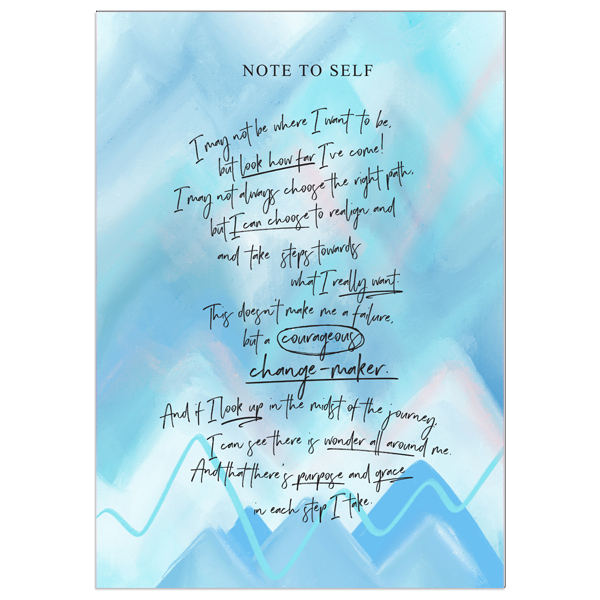 NOTE TO SELF
I may not be where I want to be,
but look how far I've come!
I may not always choose the right path,
but I can choose to realign and
and take steps towards
what I really want.
This doesn't make me a failure,
but a courageous
change-maker.
And if I look up in the midst of the journey,
I can see there is wonder all around me.
And that there's purpose and grace
in each step I take.